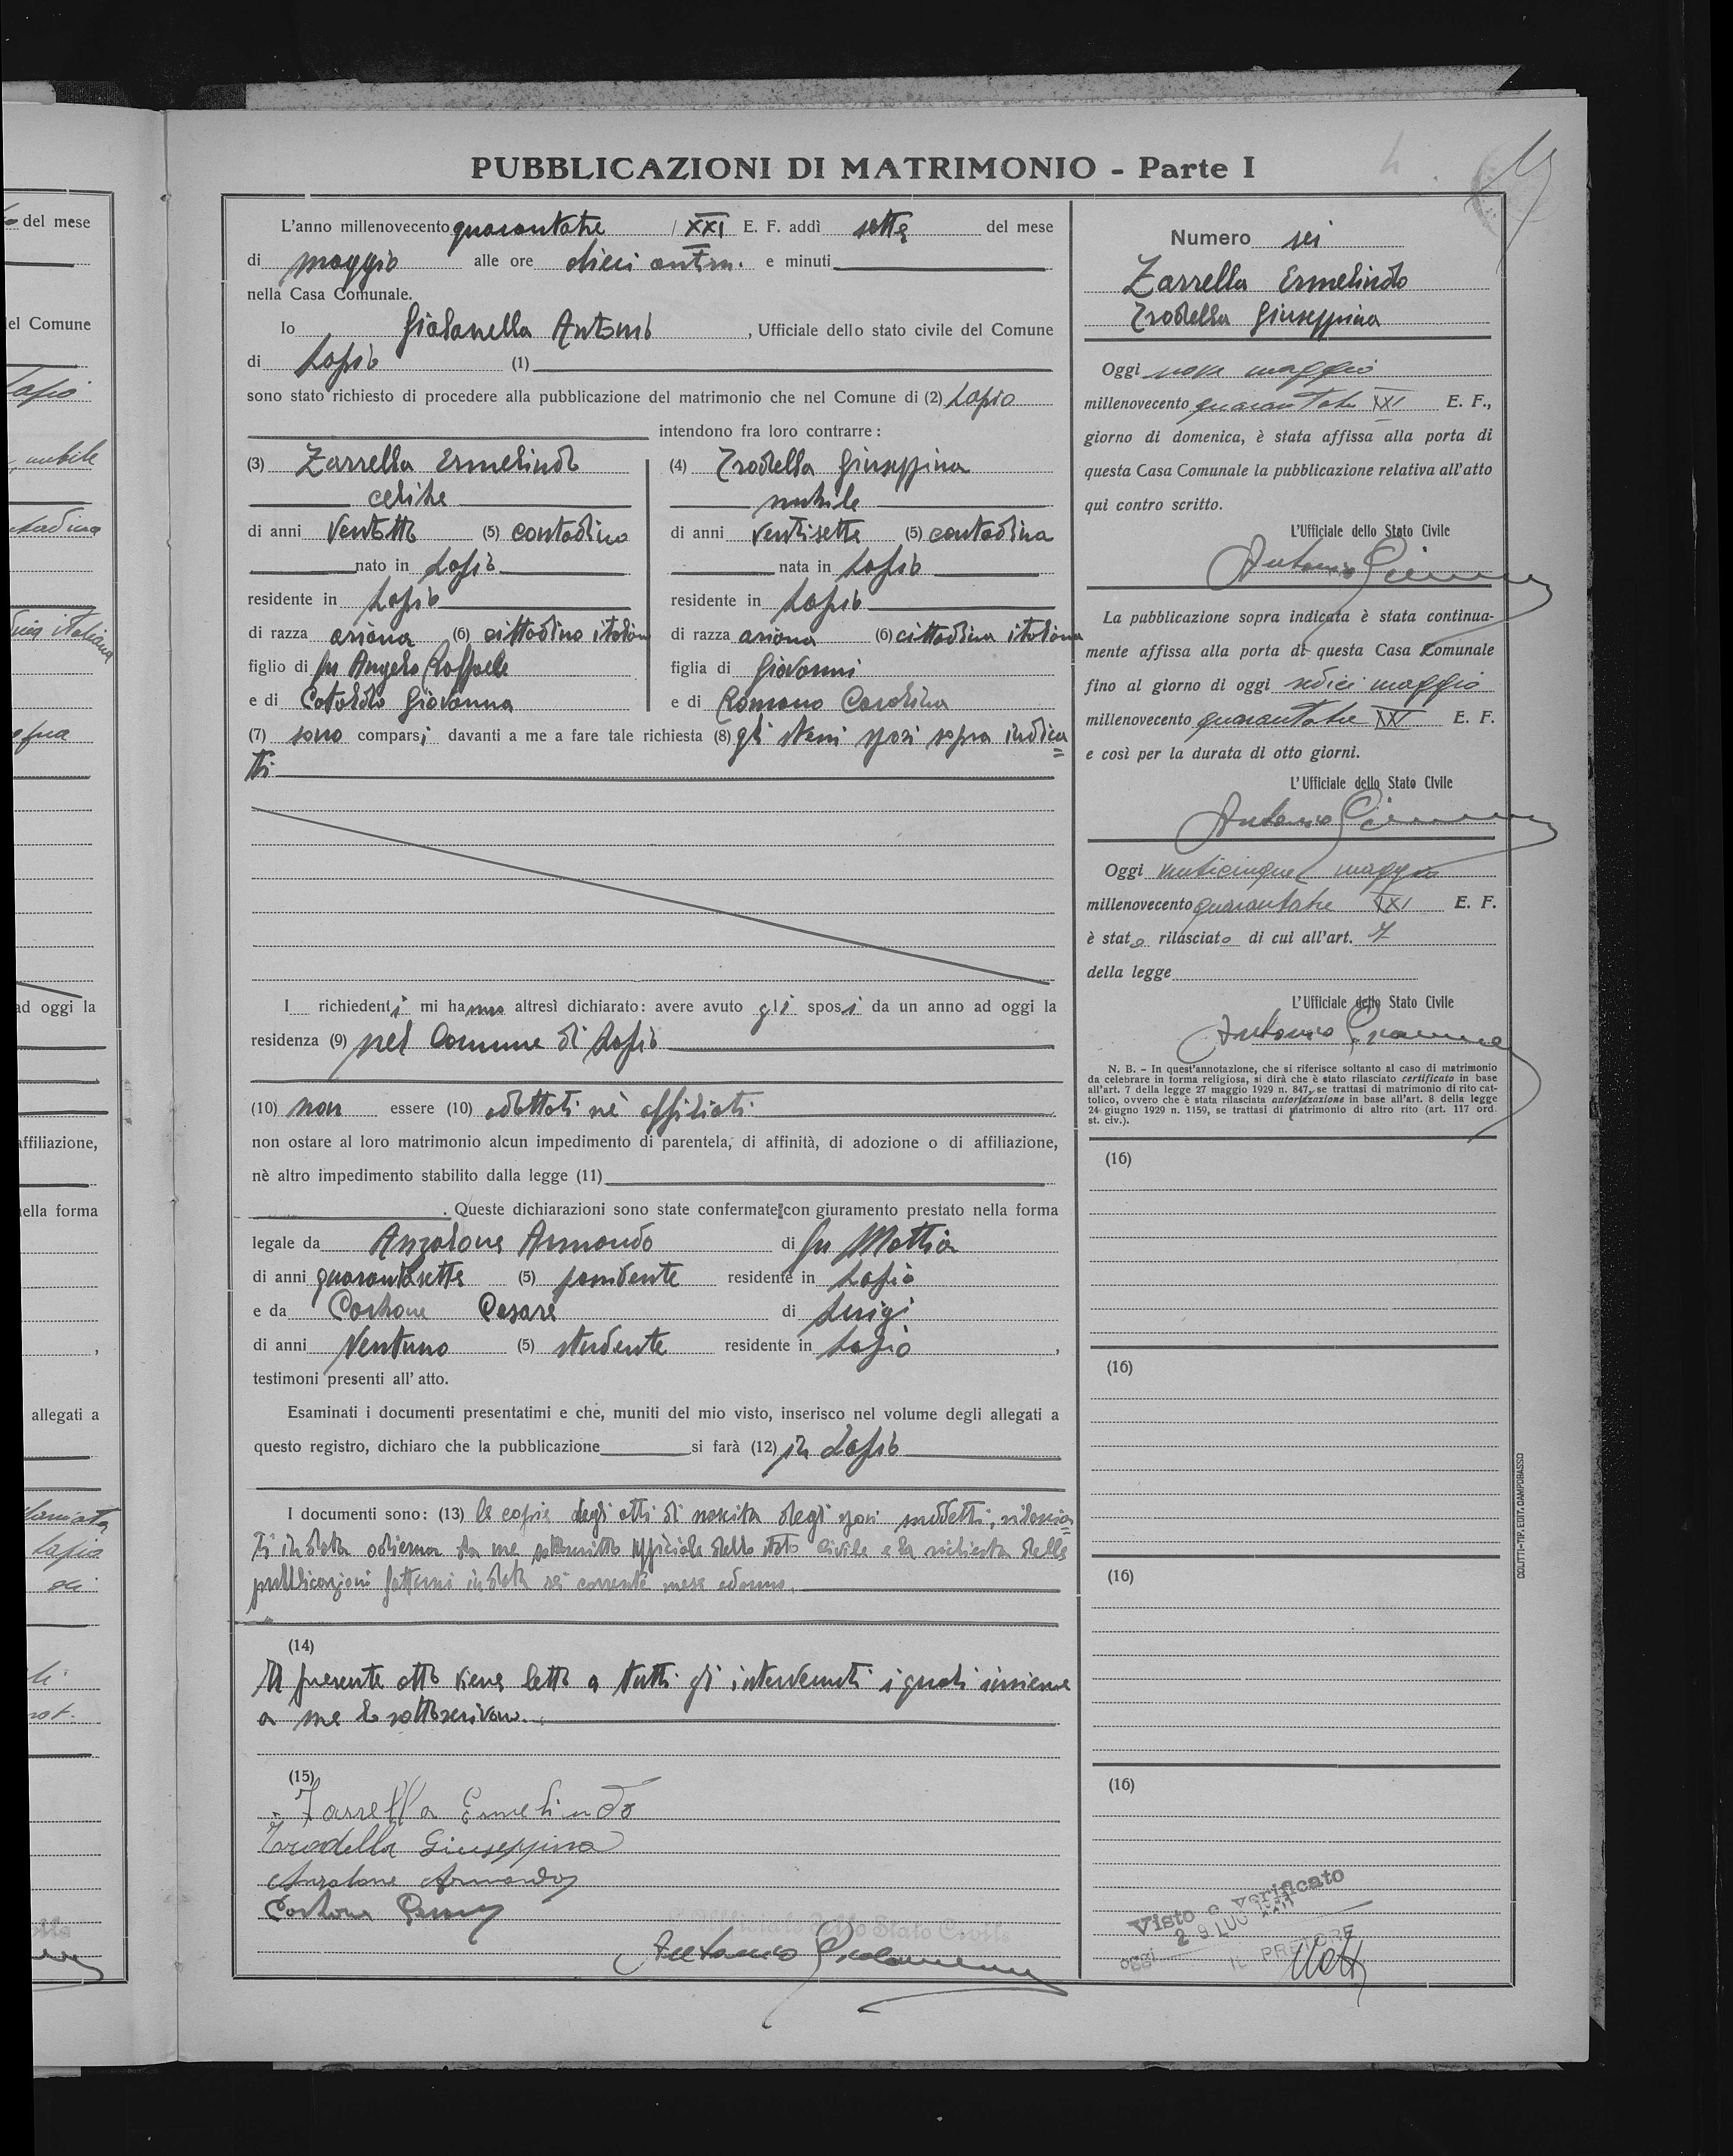 PUBBLICAZIONI DI MATRIMONIO - Parte I
L'anno millenovecento quarantatre / XXI E. F. addì sette del mese
di maggio alle ore dieci antim. e minuti
nella Casa Comunale.
Io Giolanella Antonio, Ufficiale dello stato civile del Comune
di Lapio (1)
sono stato richiesto di procedere alla pubblicazione del matrimonio che nel Comune di (2) Lapio
intendono fra loro contrarre :
(3) Zarrella Ermelindo
celibe
di anni Ventotto (5) contadino
nato in Lapio
residente in Lapio
di razza ariana (6) cittadino italiano
figlio di fu Angelo Raffaele
e di Cataldo Giovanna
(4) Trodella Giuseppina
nubile
di anni Ventisette (5) contadina
nata in Lapio
residente in Lapio
di razza ariana (6) cittadina italiana
figlia di Giovanni
e di Romano Carolina
(7) sono comparsi davanti a me a fare tale richiesta (8) gli stessi sposi sopra indica=
ti
I richiedenti mi hanno altresì dichiarato: avere avuto gli sposi da un anno ad oggi la
residenza (9) nel Comune di Lapio
(10) non essere (10) adottati nè affiliati
non ostare al loro matrimonio alcun impedimento di parentela, di affinità, di adozione o di affiliazione,
nè altro impedimento stabilito dalla legge (11)
. Queste dichiarazioni sono state confermate con giuramento prestato nella forma
legale da Anzalone Armando di fu Mattia
di anni quarantasette (5) possidente residente in Lapio
e da Carbone Cesare di Luigi
di anni Ventuno (5) studente residente in Lapio,
testimoni presenti all' atto.
Esaminati i documenti presentatimi e che, muniti del mio visto, inserisco nel volume degli allegati a
questo registro, dichiaro che la pubblicazione si farà (12) in Lapio
I documenti sono: (13) le copie degli atti di nascita degli sposi suddetti, rilascia=
ti in data odierna da me sottoscritto ufficiale dello stato civile e la richiesta delle
pubblicazioni fattami in data sei corrente mese ed anno.
(14)
Il presente atto viene letto a tutti gl'intervenuti i quali insieme
a me lo sottoscrivono.
(15)
Zarrella Ermelindo
Trodella Giuseppina
Anzalone Armando
Carbone
L'Ufficiale dello Stato Civile
Antonio
Numero sei
Zarrella Ermelindo
Trodella Giuseppina
Oggi nove maggio
millenovecento quarantatre XXI E. F.,
giorno di domenica, è stata affissa alla porta di
questa Casa Comunale la pubblicazione relativa all'atto
qui contro scritto.
L'Ufficiale dello Stato Civile
Antonio
La pubblicazione sopra indicata è stata continua-
mente affissa alla porta di questa Casa Comunale
fino al giorno di oggi sedici maggio
millenovecento quarantatre XXI E. F.
e così per la durata di otto giorni.
L'Ufficiale dello Stato Civile
Antonio
Oggi venticinque maggio
millenovecento quarantatre XXI E. F.
è stato rilasciato di cui all'art. 7
della legge
L'Ufficiale dello Stato Civile
Antonio
N. B. - In quest'annotazione, che si riferisce soltanto al caso di matrimonio
da celebrare in forma religiosa, si dirà che è stato rilasciato certificato in base
all'art. 7 della legge 27 maggio 1929 n. 847, se trattasi di matrimonio di rito cat-
tolico, ovvero che è stata rilasciata autorizzazione in base all'art. 8 della legge
24 giugno 1929 n. 1159, se trattasi di matrimonio di altro rito (art. 117 ord.
st. civ.).
(16)
(16)
(16)
(16)
Visto e Verificato
oggi 29 LUG
IL PRETORE
COLITTI-TIP. EDIT. CAMPOBASSO
del mese
del Comune
Lapio
nubile
italiana
ad oggi la
affiliazione,
nella forma
allegati a
Lapio